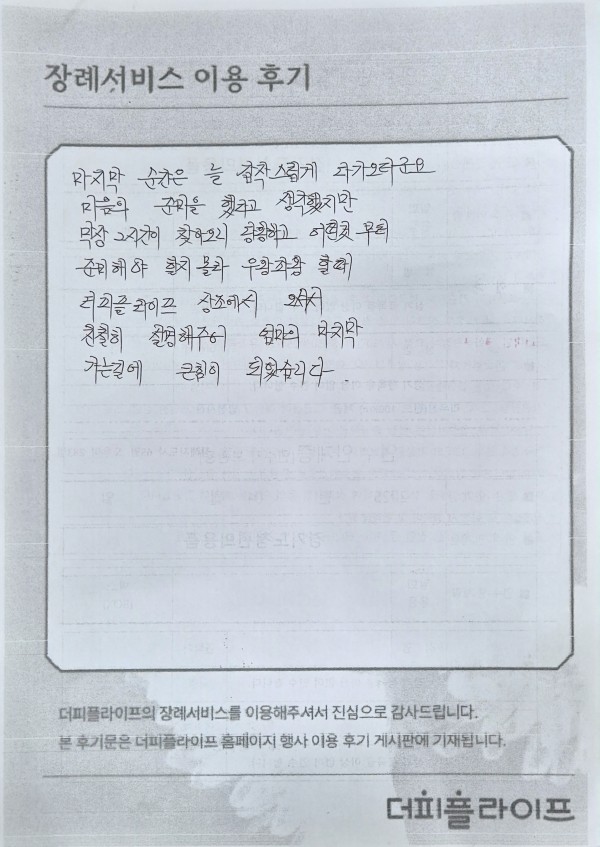 장례서비스 이용 후기
마지막 순간은 늘 갑작스럽게 다가오더군요
마음의 준비을 했다고 생각했지만
막상 그시간이 찾아오니 당황하고 어떤것 부터
준비해야 할지 몰라 우왕좌왕 할때
더피플라이프 상조에서 오셔서
친절히 설명해주어 엄마의 마지막
가는길에 큰힘이 되었습니다
더피플라이프의 장례서비스를 이용해주셔서 진심으로 감사드립니다.
본 후기문은 더피플라이프 홈페이지 행사 이용 후기 게시판에 기재됩니다.
더피플라이프